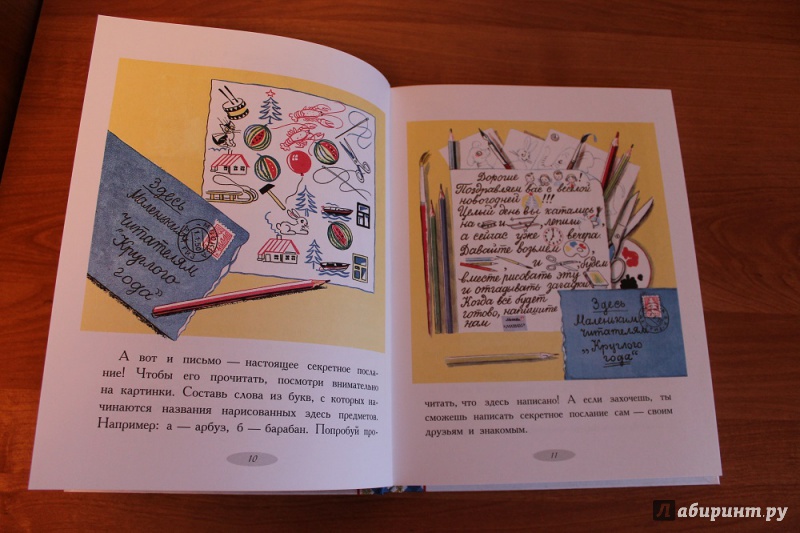 Здесь
Маленьким
читателям
"Круглого
года"
А вот и письмо — настоящее секретное посла-
ние! Чтобы его прочитать, посмотри внимательно
на картинки. Составь слова из букв, с которых на-
чинаются названия нарисованных здесь предметов.
Например: а — арбуз, б — барабан. Попробуй про-
10
Дорогие !
Поздравляем вас с весёлой
новогодней !!!
Целый день вы катались
на и , лепили
а сейчас уже вечера
Давайте возьмём
и будем
вместе рисовать эту
и отгадывать загадки.
Когда всё будет
готово, напишите
нам
Здесь
Маленьким
читателям
„Круглого
года"
читать, что здесь написано! А если захочешь, ты
сможешь написать секретное послание сам — своим
друзьям и знакомым.
11
Лабиринт.ру